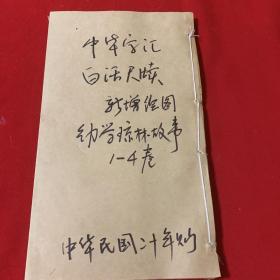 中华字汇
白话尺牍
新增绘图
幼学琼林故事
1-4卷
中华民国二十年版